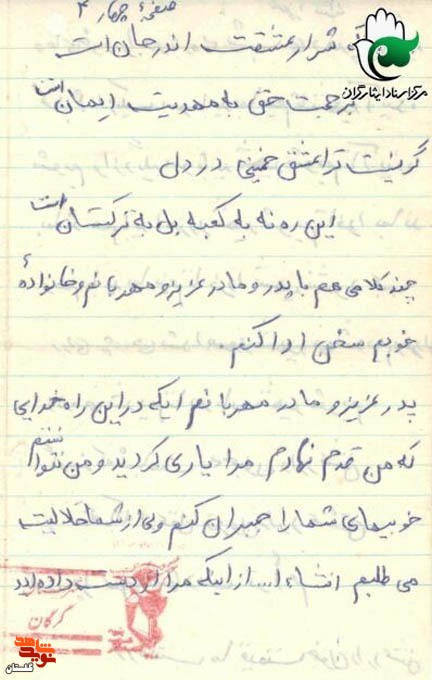 صفحهٔ چهار ۴
که شرار عشقت اندر جان است
مرکز اسناد ایثارگران
بر حجت حق به مهدیت ایمان است
گر نیست ترا عشق خمینی در دل
این ره نه به کعبه بل به ترکستان است
چند کلامی هم با پدر و مادر عزیز و مهربانم و خانوادهٔ
خوبم سخن ادا کنم.
پدر عزیز و مادر مهربانم ایکه در این راه خدایی
که من قدم نهادم مرا یاری کردید و من نتوانستم
خوبیهای شما را جبران کنم ولی از شما حلالیت
می طلبم انشاءا... از اینکه مرا از دست داده اید
گرگان
نوید شاهد
گلستان